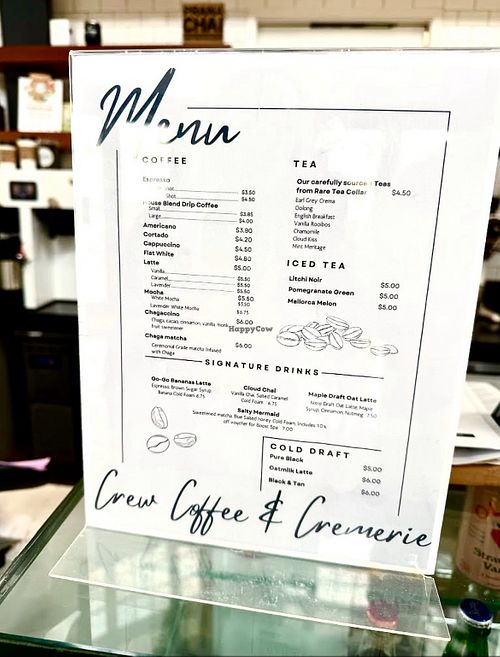 CHAI
Menu
COFFEE
Espresso
$3.50
$4.50
House Blend Drip Coffee
Small $3.85
Large $4.00
Americano $3.80
Cortado $4.20
Cappuccino $4.50
Flat White $4.80
Latte $5.00
Vanilla $5.50
Caramel $5.50
Lavender $5.50
Mocha $5.50
White Mocha
Lavender White Mocha
Chagaccino $6.00
Chaga, cacao, cinnamon, vanilla, monk
fruit sweetener
Chaga matcha $6.00
Ceremonial Grade matcha Infused
with Chaga
TEA
Our carefully sourced Teas
from Rare Tea Cellar $4.50
Earl Grey Crema
Oolong
English Breakfast
Vanilla Rooibos
Chamomile
Cloud Kiss
Mint Meritage
ICED TEA
Litchi Noir $5.00
Pomegranate Green $5.00
Mallorca Melon $5.00
HappyCow
SIGNATURE DRINKS
Go-Go Bananas Latte
Espresso, Brown Sugar Syrup
Banana Cold Foam 6.75
Cloud Chai
Vanilla Chai, Salted Caramel
Cold Foam 6.75
Maple Draft Oat Latte
Nitro Draft Oat Latte, Maple
Syrup, Cinnamon, Nutmeg 7.50
Salty Mermaid
Sweetened matcha, Blue Salted honey Cold Foam, Includes 10%
off voucher for Boost Spa 7.00
COLD DRAFT
Pure Black $5.00
Oatmilk Latte $6.00
Black & Tan $6.00
Crew Coffee & Cremerie